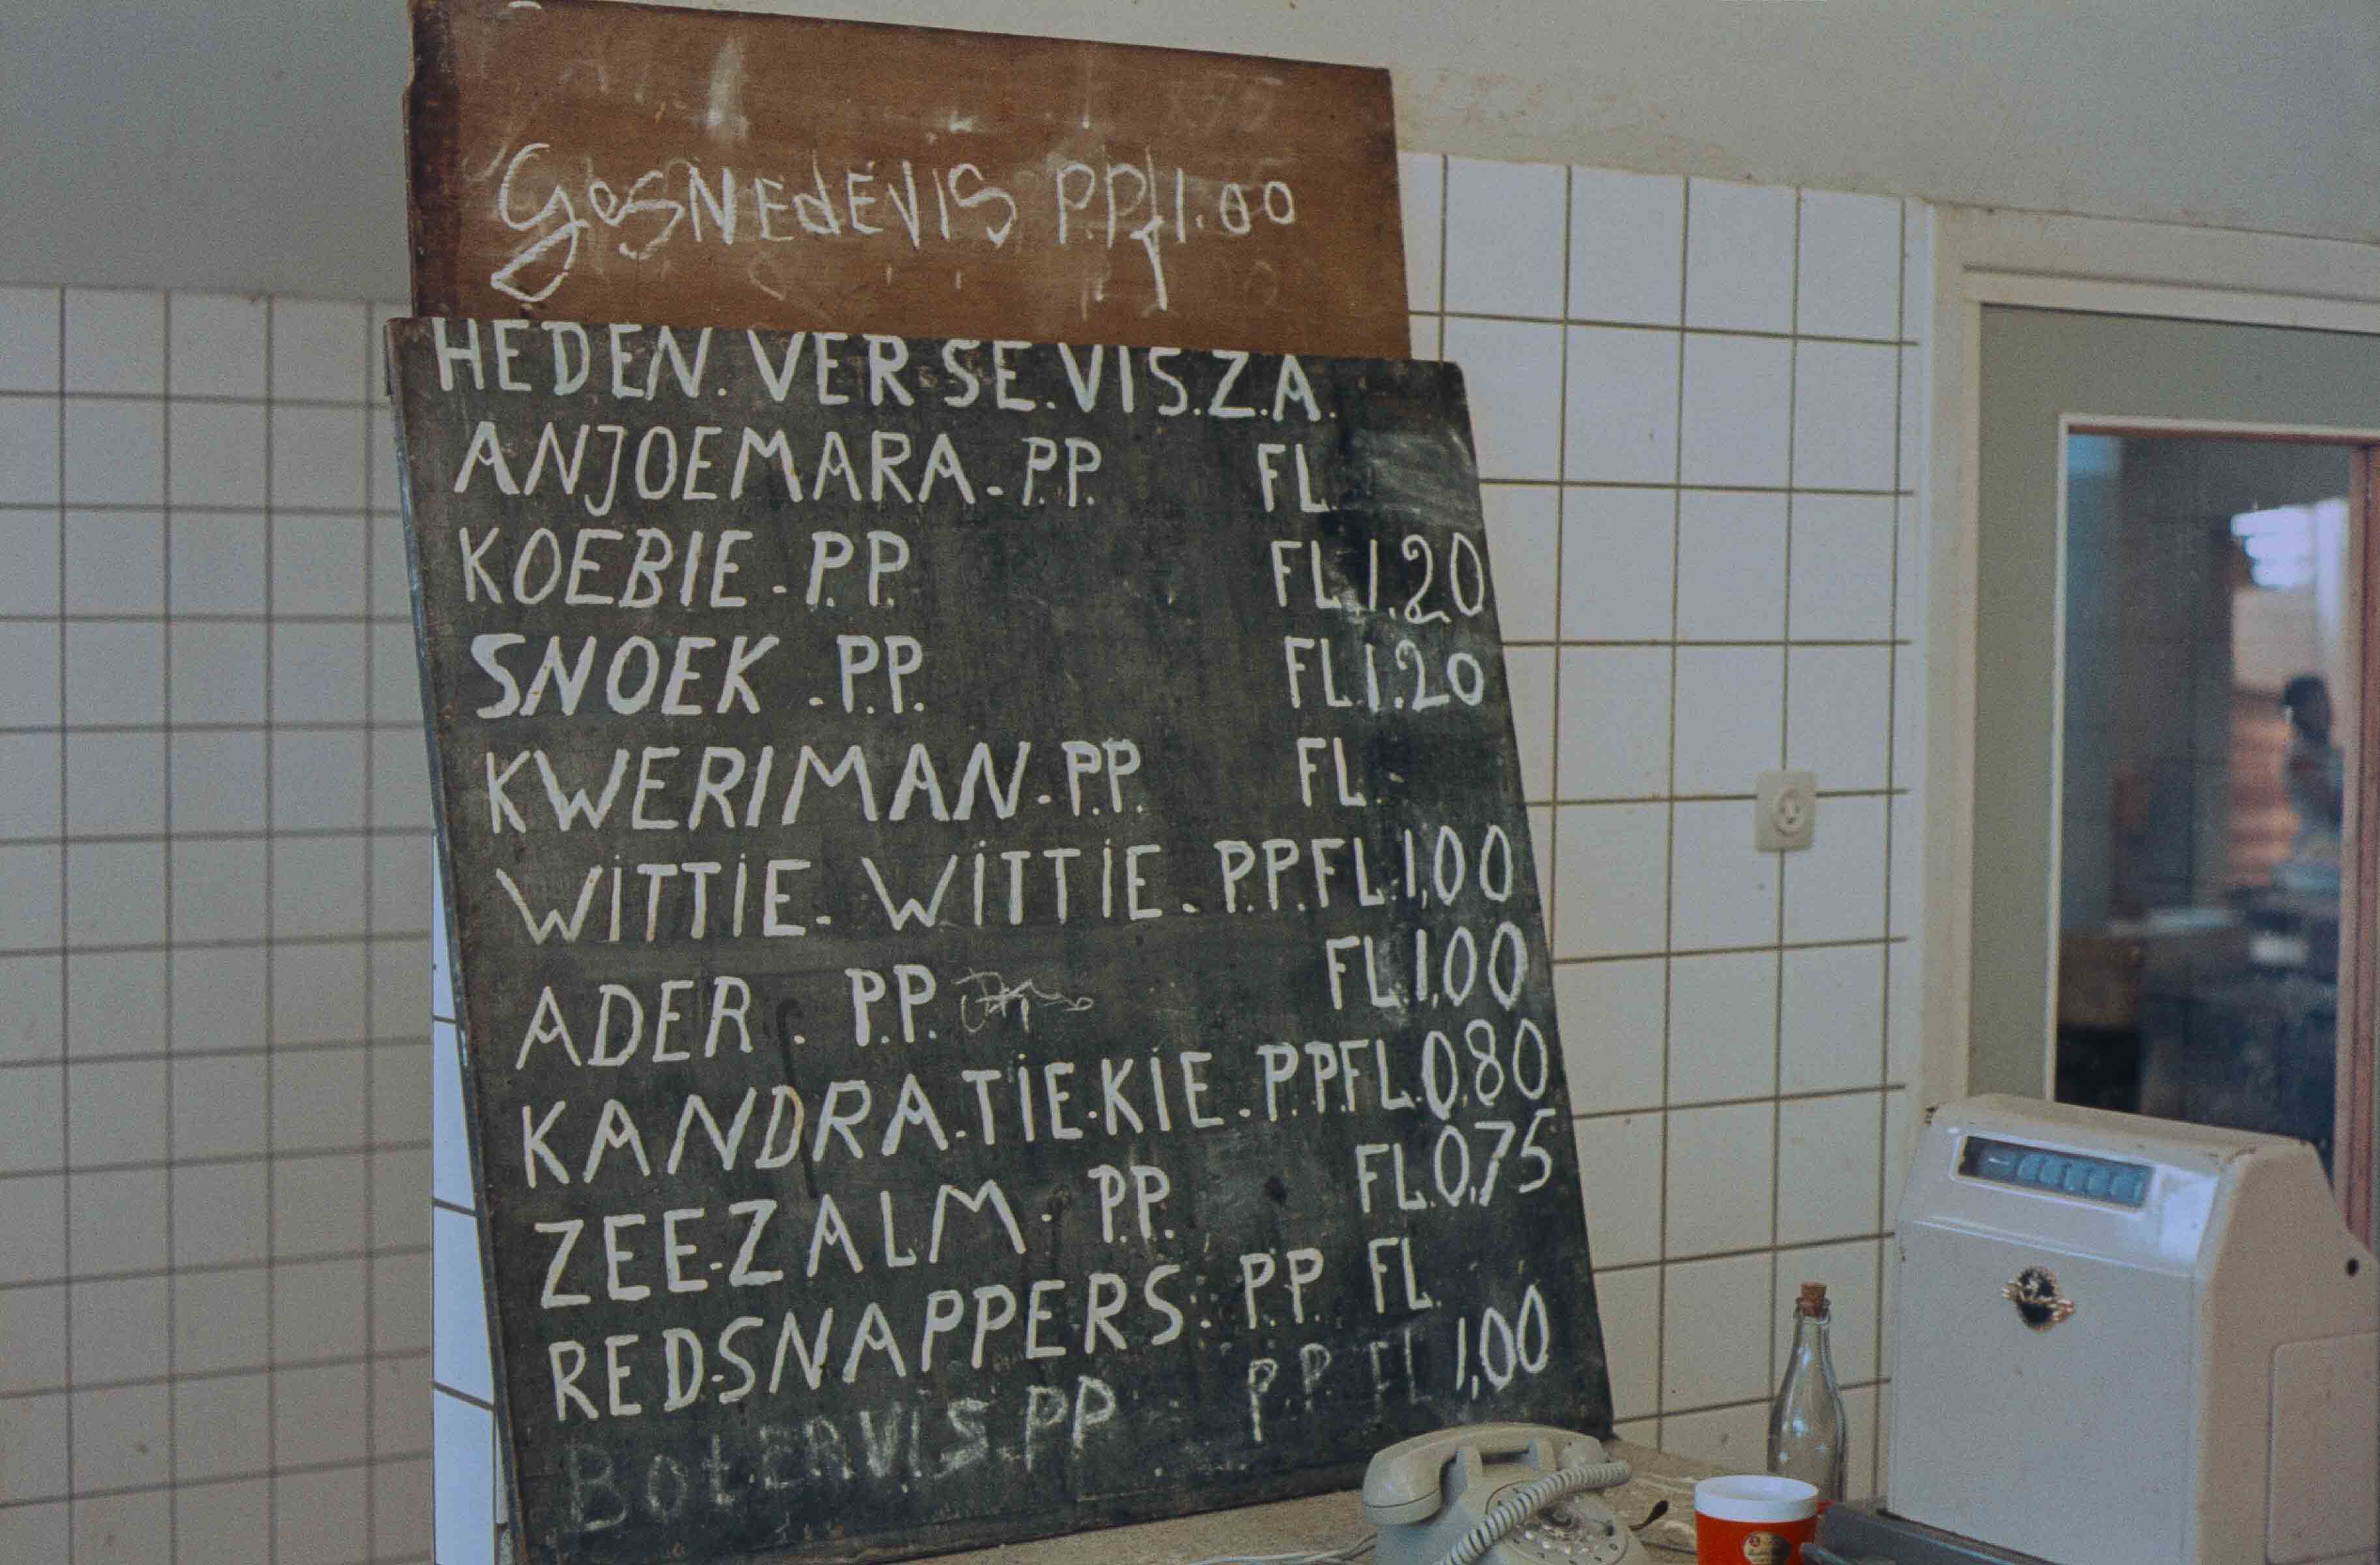 GesNEdEVIS P.P. fl.00
HEDEN. VERSE. VIS. Z.A.
ANJOEMARA - P.P. FL.
KOEBIE - P.P. FL. 1.20
SNOEK . P.P. FL. 1.20
KWERIMAN - P.P. FL.
WITTIE - WITTIE . P.P. FL. 1,00
ADER . P.P. FL. 1,00
KANDRA.TIE.KIE . P.P. FL. 0,80
ZEE-ZALM . P.P. FL. 0,75
RED-SNAPPERS . P.P. FL.
BotERVIS PP P.P. FL 1,00